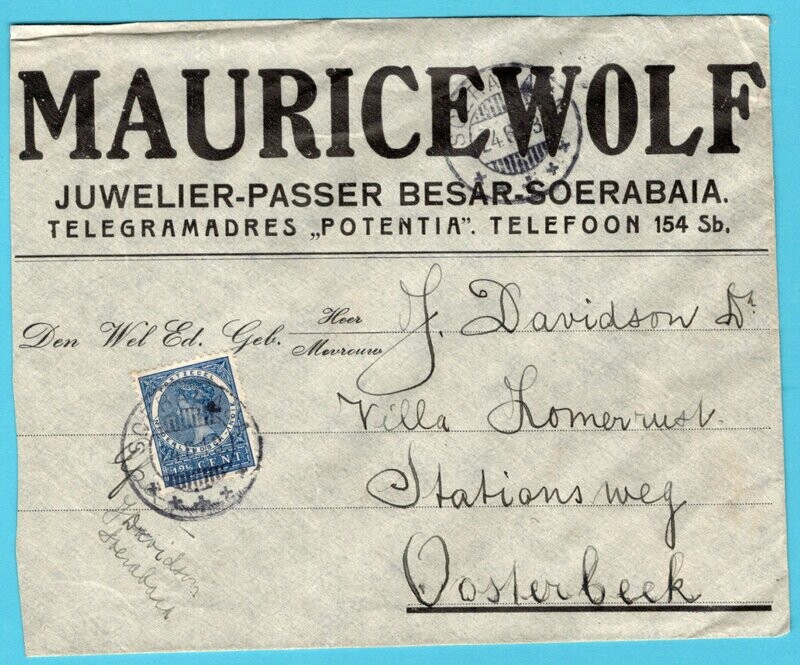 MAURICE WOLF
JUWELIER-PASSER BESAR-SOERABAIA.
TELEGRAMADRES „POTENTIA”. TELEFOON 154 Sb.
Den Wel Ed. Geb. Heer
Mevrouw
J. Davidson Dr
Villa Zomerrust
Stationsweg
Oosterbeek
POSTZEGEL
NEDERLANDSCH-INDIE
12½ CENT
J Davidson
Soerabaia